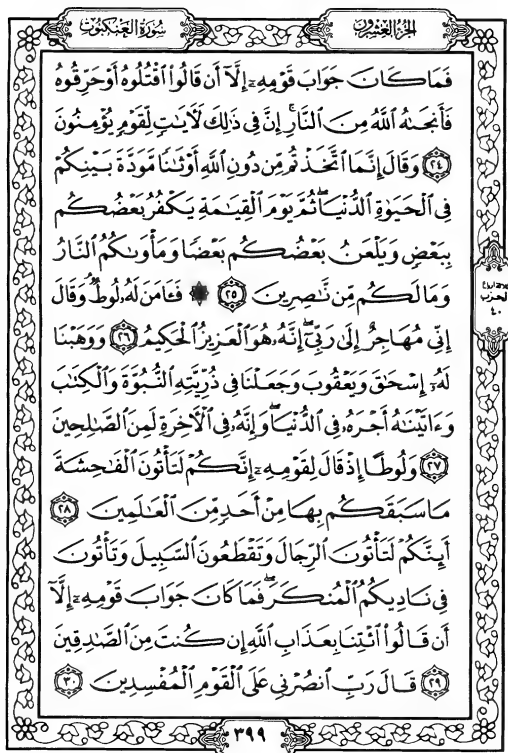 سُورَةُ العَنكَبُوتِ
الجُزْءُ العِشْرُونَ
فَمَا كَانَ جَوَابَ قَوْمِهِۦٓ إِلَّآ أَن قَالُوا۟ ٱقْتُلُوهُ أَوْ حَرِّقُوهُ
فَأَنجَىٰهُ ٱللَّهُ مِنَ ٱلنَّارِ ۚ إِنَّ فِى ذَٰلِكَ لَـَٔايَٰتٍ لِّقَوْمٍ يُؤْمِنُونَ
٢٤ وَقَالَ إِنَّمَا ٱتَّخَذْتُم مِّن دُونِ ٱللَّهِ أَوْثَٰنًا مَّوَدَّةَ بَيْنِكُمْ
فِى ٱلْحَيَوٰةِ ٱلدُّنْيَا ۖ ثُمَّ يَوْمَ ٱلْقِيَٰمَةِ يَكْفُرُ بَعْضُكُم
بِبَعْضٍ وَيَلْعَنُ بَعْضُكُم بَعْضًا وَمَأْوَىٰكُمُ ٱلنَّارُ
وَمَا لَكُم مِّن نَّٰصِرِينَ ٢٥ ۞ فَـَٔامَنَ لَهُۥ لُوطٌ ۘ وَقَالَ
إِنِّى مُهَاجِرٌ إِلَىٰ رَبِّىٓ ۖ إِنَّهُۥ هُوَ ٱلْعَزِيزُ ٱلْحَكِيمُ ٢٦ وَوَهَبْنَا
لَهُۥٓ إِسْحَٰقَ وَيَعْقُوبَ وَجَعَلْنَا فِى ذُرِّيَّتِهِ ٱلنُّبُوَّةَ وَٱلْكِتَٰبَ
وَءَاتَيْنَٰهُ أَجْرَهُۥ فِى ٱلدُّنْيَا ۖ وَإِنَّهُۥ فِى ٱلْـَٔاخِرَةِ لَمِنَ ٱلصَّٰلِحِينَ
٢٧ وَلُوطًا إِذْ قَالَ لِقَوْمِهِۦٓ إِنَّكُمْ لَتَأْتُونَ ٱلْفَٰحِشَةَ
مَا سَبَقَكُم بِهَا مِنْ أَحَدٍ مِّنَ ٱلْعَٰلَمِينَ ٢٨
أَئِنَّكُمْ لَتَأْتُونَ ٱلرِّجَالَ وَتَقْطَعُونَ ٱلسَّبِيلَ وَتَأْتُونَ
فِى نَادِيكُمُ ٱلْمُنكَرَ ۖ فَمَا كَانَ جَوَابَ قَوْمِهِۦٓ إِلَّآ
أَن قَالُوا۟ ٱئْتِنَا بِعَذَابِ ٱللَّهِ إِن كُنتَ مِنَ ٱلصَّٰدِقِينَ
٢٩ قَالَ رَبِّ ٱنصُرْنِى عَلَى ٱلْقَوْمِ ٱلْمُفْسِدِينَ ٣٠
الحزب
٤٠
٣٩٩